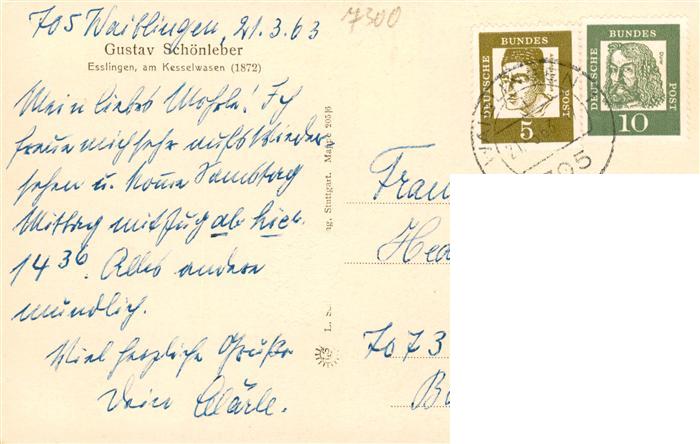 705 Waiblingen, 21.3.63
7300
Gustav Schönleber
Esslingen, am Kesselwasen (1872)
Mein liebes Mohrle! Ich
freue mich sehr aufs Wieder
sehen u. komme Samstag
Mittag mit Zug ab hier
14 36. Alles andere
mündlich.
Viel herzliche Grüße
Dein
ng, Stuttgart. 205
L. S
DEUTSCHE BUNDES POST
5
DEUTSCHE BUNDES POST
Dürer
10
21.3.63
705
Frau
Hed
7073